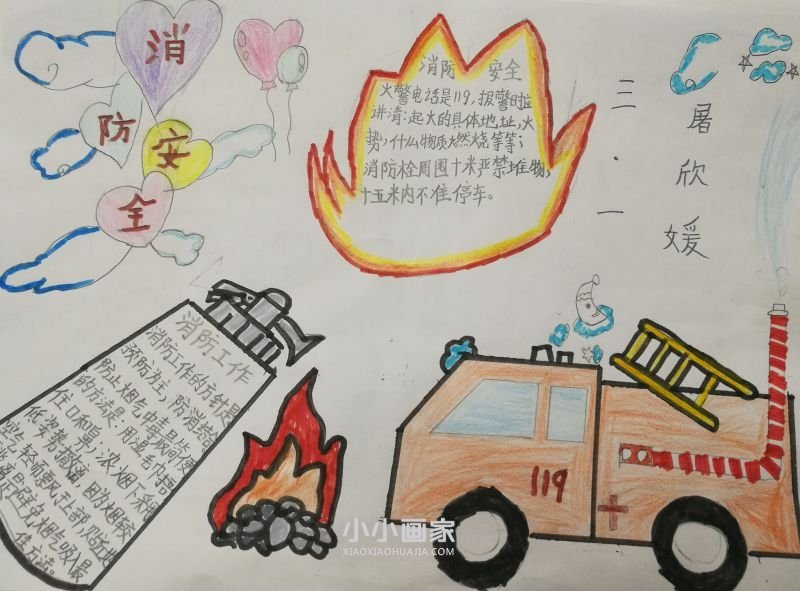 消
防
安
全
消防 安全
火警电话是119,报警时应
讲清:起火的具体地址,火
势,什么物质燃烧等等;
消防栓周围十米严禁堆物,
十五米内不准停车。
三·一
屠欣媛
消防工作
消防工作的方针是
预防为主,防消结合。
防止烟气中毒最简便
的方法是:用湿毛巾捂
住口和鼻,浓烟下采用
低姿势撤离,因为烟较
空气轻而飘于上部,贴近地
避免烟气吸入最
佳方法。
119
小小画家
XIAOXIAOHUAJIA.COM